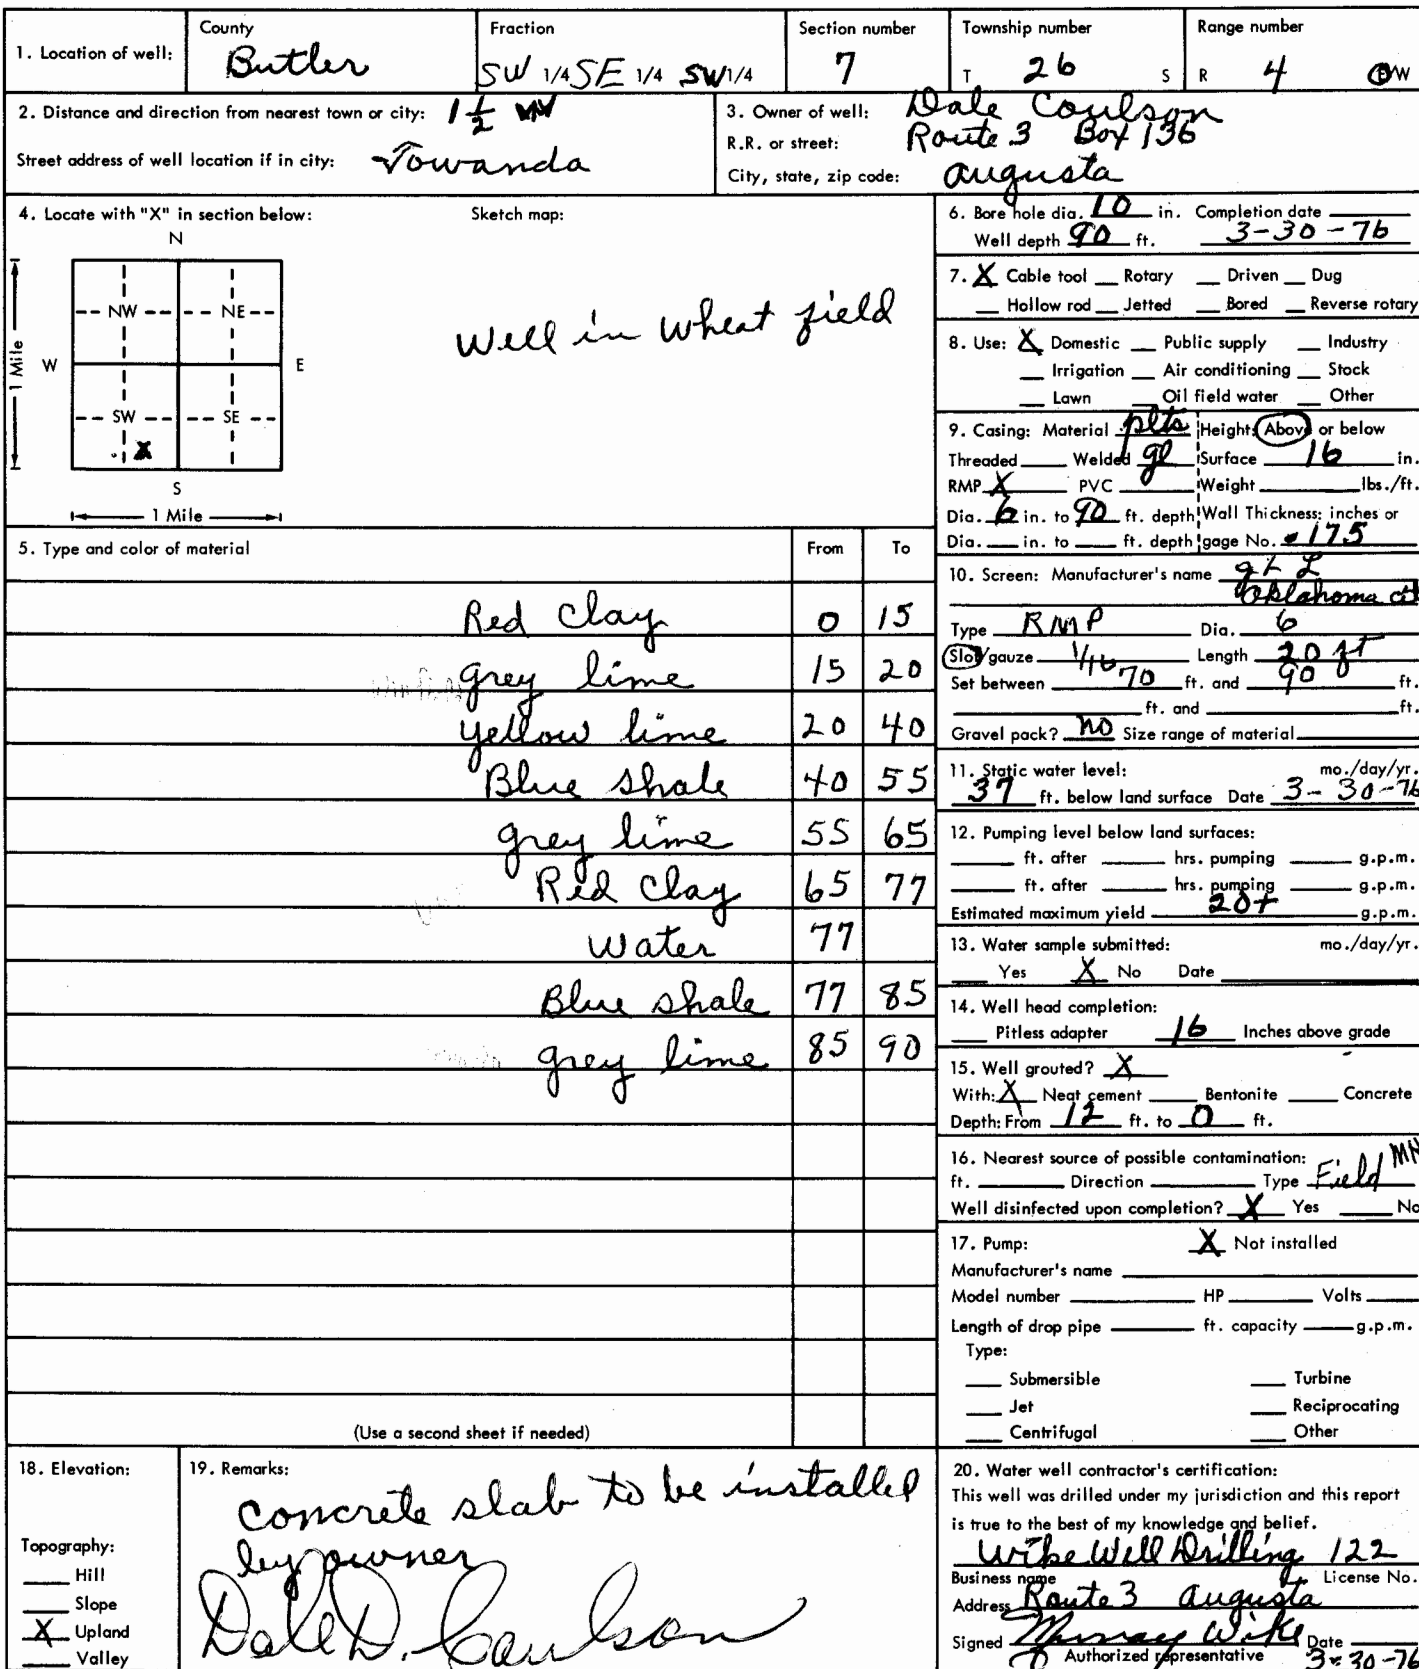 1. Location of well: County Butler Fraction SW 1/4 SE 1/4 SW 1/4 Section number 7 Township number T 26 S Range number R 4 E/W
2. Distance and direction from nearest town or city: 1 1/2
Street address of well location if in city: Towanda
3. Owner of well: Dale Coulson
R.R. or street: Route 3 Box 136
City, state, zip code: Augusta
4. Locate with "X" in section below: Sketch map:
N
NW NE
W E
1 Mile
SW SE
X
S
1 Mile
Well in wheat field
5. Type and color of material From To
Red Clay 0 15
grey lime 15 20
yellow lime 20 40
Blue shale 40 55
grey lime 55 65
Red Clay 65 77
Water 77
Blue shale 77 85
grey lime 85 90
(Use a second sheet if needed)
6. Bore hole dia. 10 in. Completion date
Well depth 90 ft. 3-30-76
7. X Cable tool Rotary Driven Dug
Hollow rod Jetted Bored Reverse rotary
8. Use: X Domestic Public supply Industry
Irrigation Air conditioning Stock
Lawn Oil field water Other
9. Casing: Material plts Height: Above or below
Threaded Welded gl Surface 16 in.
RMP X PVC Weight lbs./ft.
Dia. 6 in. to 90 ft. depth Wall Thickness: inches or
Dia. in. to ft. depth gage No. .175
10. Screen: Manufacturer's name
Oklahoma
Type RMP Dia. 6
Slot/gauze 1/16 Length 20 ft
Set between 70 ft. and 90 ft.
ft. and ft.
Gravel pack? no Size range of material
11. Static water level: mo./day/yr.
37 ft. below land surface Date 3-30-76
12. Pumping level below land surfaces:
ft. after hrs. pumping g.p.m.
ft. after hrs. pumping g.p.m.
Estimated maximum yield 20+ g.p.m.
13. Water sample submitted: mo./day/yr.
Yes X No Date
14. Well head completion:
Pitless adapter 16 Inches above grade
15. Well grouted? X
With: X Neat cement Bentonite Concrete
Depth: From 12 ft. to 0 ft.
16. Nearest source of possible contamination:
ft. Direction Type Field
Well disinfected upon completion? X Yes No
17. Pump: X Not installed
Manufacturer's name
Model number HP Volts
Length of drop pipe ft. capacity g.p.m.
Type:
Submersible Turbine
Jet Reciprocating
Centrifugal Other
18. Elevation:
Topography:
Hill
Slope
X Upland
Valley
19. Remarks:
concrete slab to be installed
by owner
Dale D. Coulson
20. Water well contractor's certification:
This well was drilled under my jurisdiction and this report
is true to the best of my knowledge and belief.
Wike Well Drilling 122
Business name License No.
Address Route 3 Augusta
Signed Murray Wike Date
Authorized representative 3-30-76